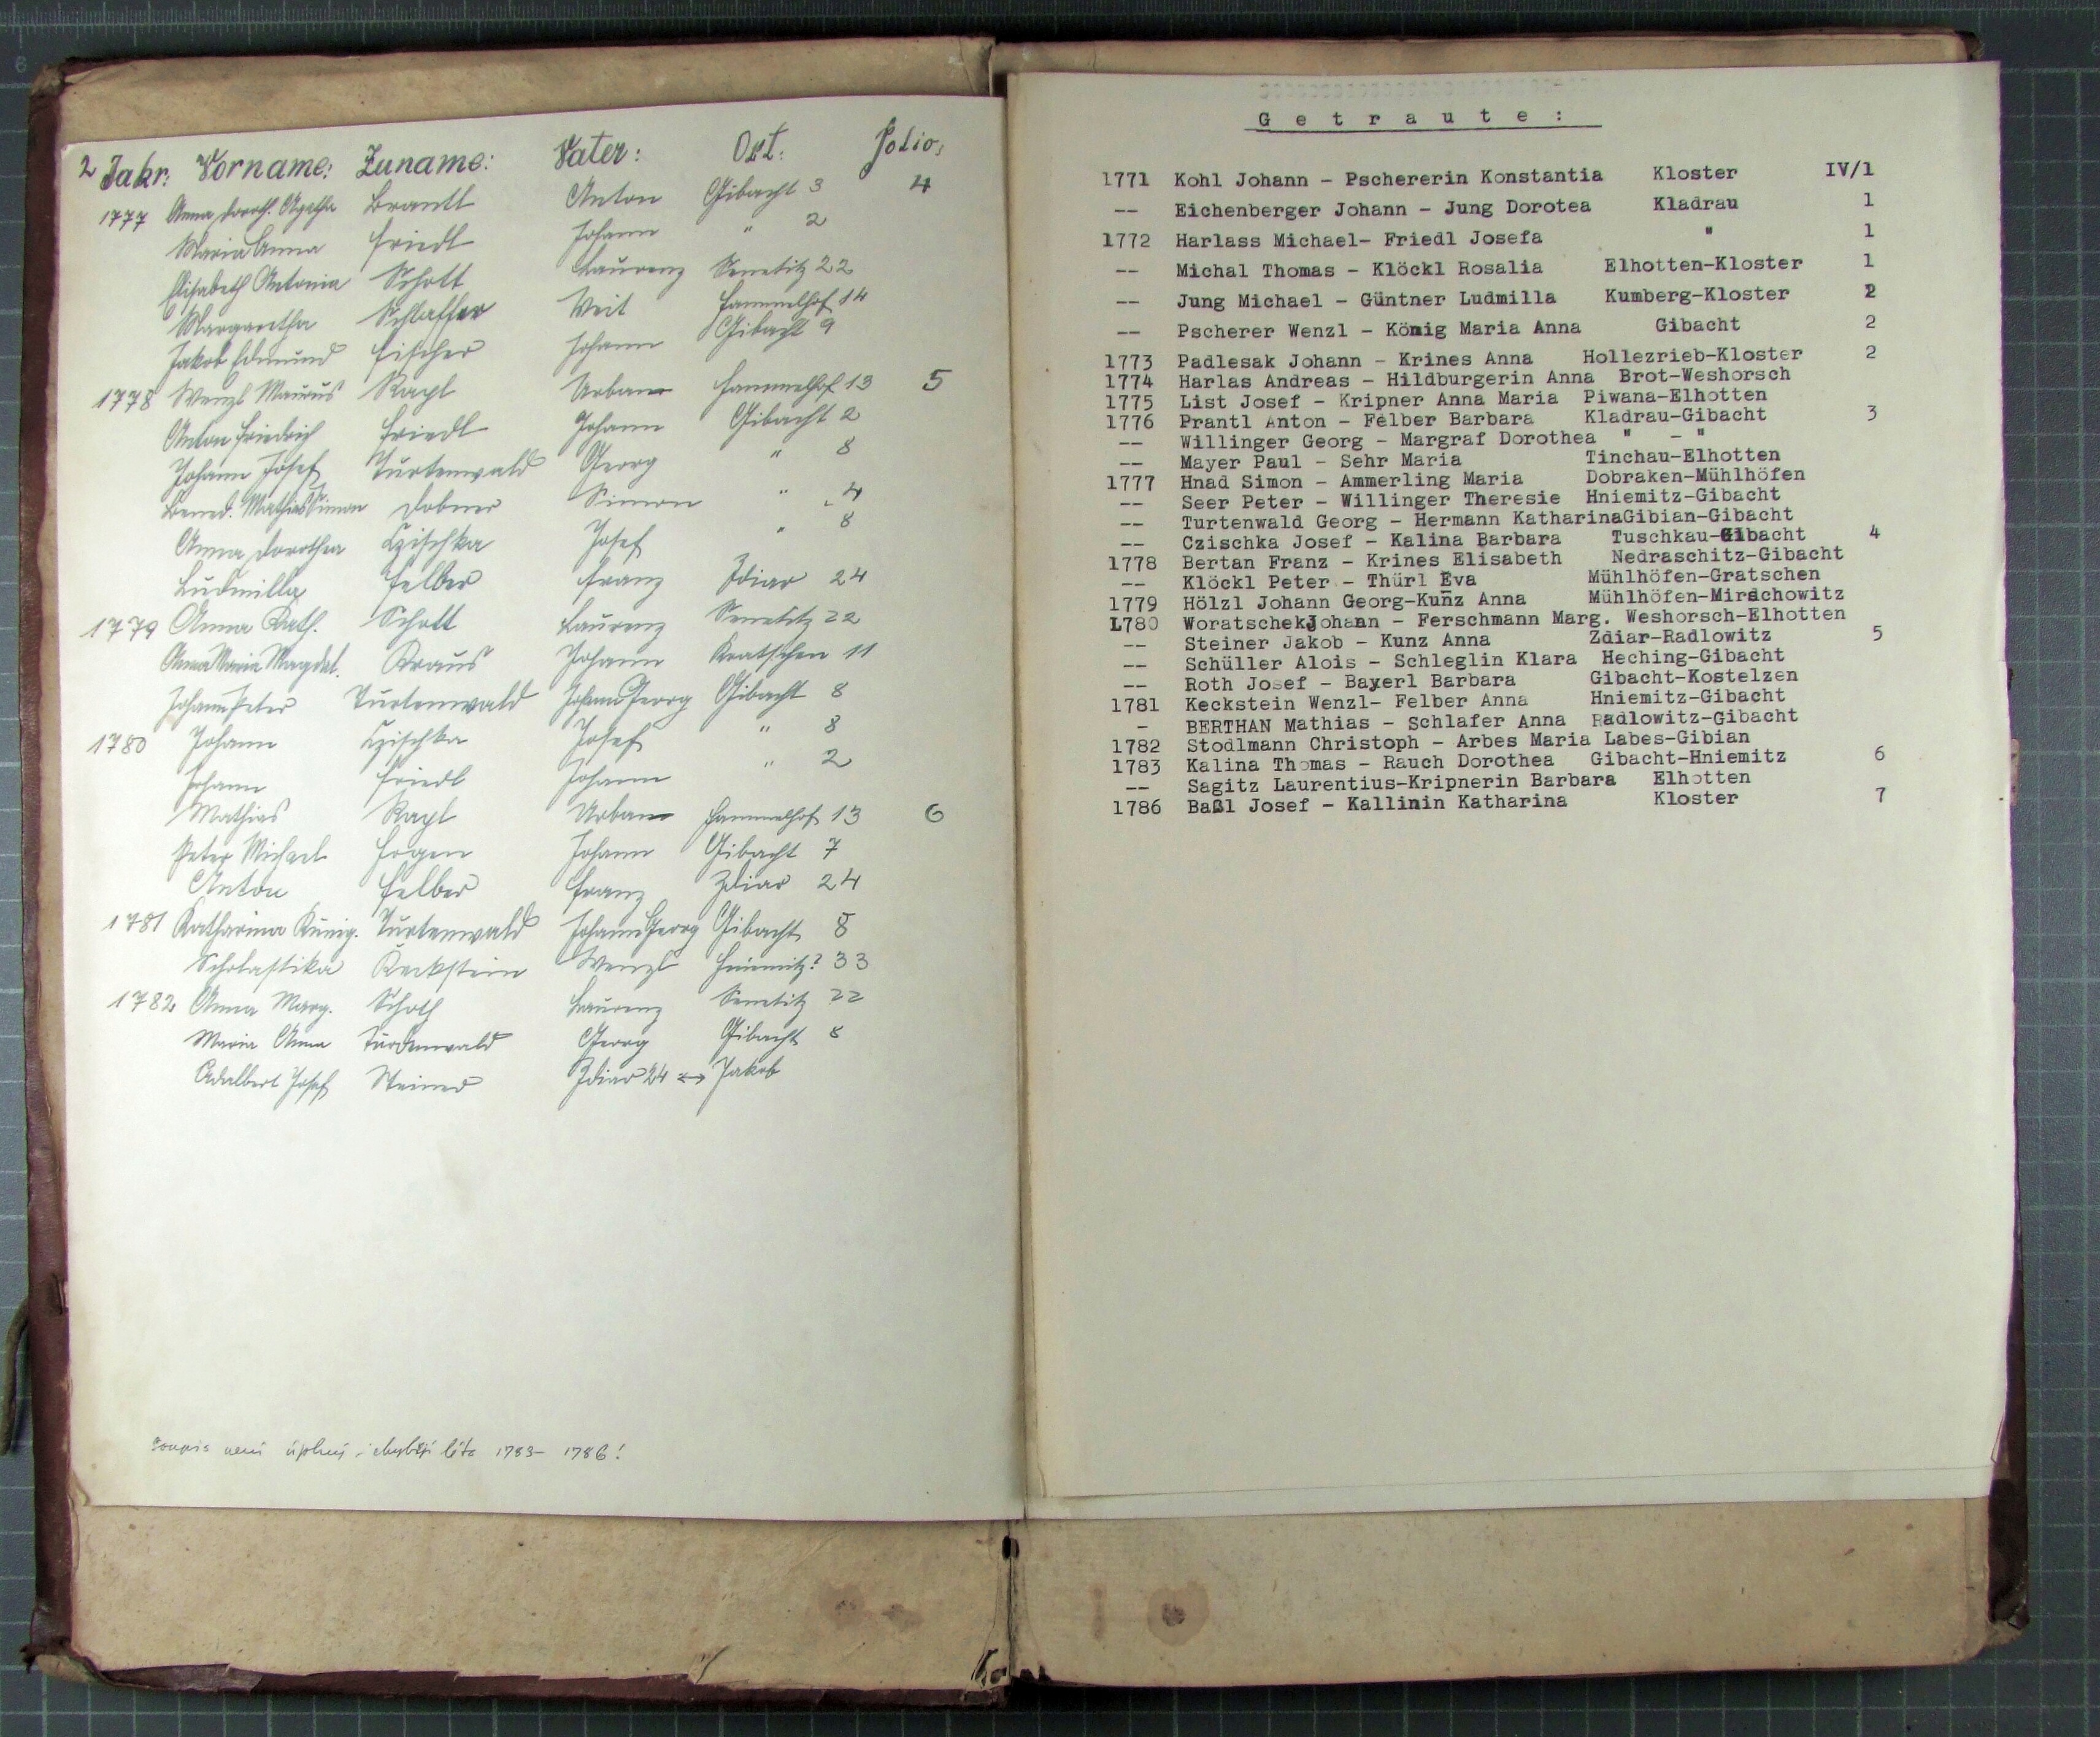 2 Jahr: Vorname: Zuname: Vater: Ort: Folio:
1777 Anna Doroth. Agatha Brantl Anton Gibacht 3 4
Maria Anna Friedl Johann " 2
Elisabeth Antonia Schott Laurenz Senetitz 22
Margaretha Schlaffer Veit Hammelhof 14
Jakob Edmund Fischer Johann Gibacht 9
1778 Wenzl Maurus Urban Hammelhof 13 5
Anton Friedrich Friedl Johann Gibacht 2
Johann Josef Turtenwald Georg " 8
Bened. Mathias Simon Dobner Simon " 4
Anna Dorothea Czischka Josef " 8
Ludmilla Felber Franz Zdiar 24
1779 Anna Kath. Schott Laurenz Senetitz 22
Anna Maria Magdal. Kraus Johann Kratschen 11
Johann Peter Turtenwald Johann Georg Gibacht 8
1780 Johann Czischka Josef " 8
Johann Friedl Johann " 2
Mathias Urban Hammelhof 13 6
Peter Michael Johann Gibacht 7
Anton Felber Franz Zdiar 24
1781 Katharina Kunig. Turtenwald Johann Georg Gibacht 8
Scholastika Keckstein Wenzl Hniemitz? 33
1782 Anna Marg. Schott Laurenz Senetitz 22
Maria Anna Turdenwald Georg Gibacht 8
Adalbert Josef Steiner Zdiar 24 ↔ Jakob
Soupis není úplný, chybějí léta 1783- 1786!
Getraute:
1771 Kohl Johann - Pschererin Konstantia Kloster IV/1
-- Eichenberger Johann - Jung Dorotea Kladrau 1
1772 Harlass Michael- Friedl Josefa " 1
-- Michal Thomas - Klöckl Rosalia Elhotten-Kloster 1
-- Jung Michael - Güntner Ludmilla Kumberg-Kloster 2
-- Pscherer Wenzl - König Maria Anna Gibacht 2
1773 Padlesak Johann - Krines Anna Hollezrieb-Kloster 2
1774 Harlas Andreas - Hildburgerin Anna Brot-Weshorsch
1775 List Josef - Kripner Anna Maria Piwana-Elhotten
1776 Prantl Anton - Felber Barbara Kladrau-Gibacht 3
-- Willinger Georg - Margraf Dorothea " - "
-- Mayer Paul - Sehr Maria Tinchau-Elhotten
1777 Hnad Simon - Ammerling Maria Dobraken-Mühlhöfen
-- Seer Peter - Willinger Theresie Hniemitz-Gibacht
-- Turtenwald Georg - Hermann KatharinaGibian-Gibacht
-- Czischka Josef - Kalina Barbara Tuschkau-Gibacht 4
1778 Bertan Franz - Krines Elisabeth Nedraschitz-Gibacht
-- Klöckl Peter - Thürl Eva Mühlhöfen-Gratschen
1779 Hölzl Johann Georg-Kunz Anna Mühlhöfen-Mirschowitz
1780 WoratschekJohann - Ferschmann Marg. Weshorsch-Elhotten
-- Steiner Jakob - Kunz Anna Zdiar-Radlowitz 5
-- Schüller Alois - Schleglin Klara Heching-Gibacht
-- Roth Josef - Bayerl Barbara Gibacht-Kostelzen
1781 Keckstein Wenzl- Felber Anna Hniemitz-Gibacht
- BERTHAN Mathias - Schlafer Anna Radlowitz-Gibacht
1782 Stodlmann Christoph - Arbes Maria Labes-Gibian
1783 Kalina Thomas - Rauch Dorothea Gibacht-Hniemitz 6
-- Sagitz Laurentius-Kripnerin Barbara Elhotten
1786 Baßl Josef - Kallinin Katharina Kloster 7